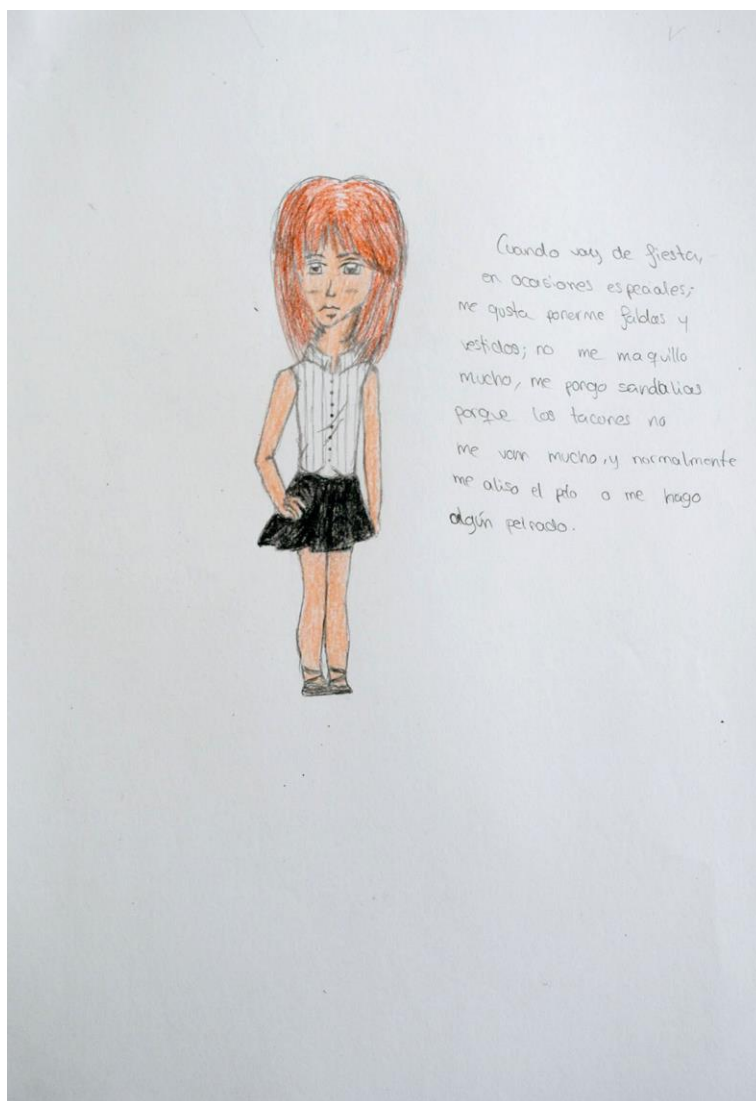 Cuando voy de fiesta,
en ocasiones especiales;
me gusta ponerme faldas y
vestidos; no me maquillo
mucho, me pongo sandalias
porque los tacones no
me van mucho, y normalmente
me aliso el plo o me hago
algún peinado.